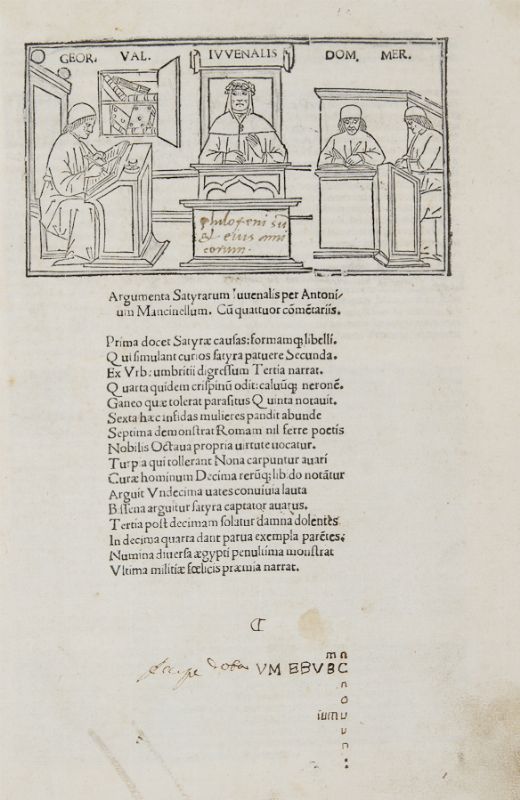 GEOR. VAL. IVVENALIS DOM. MER.
philoxeni su
& eius ami
corum.
Argumenta Satyrarum Iuuenalis per Antoni/
um Mancinellum. Cũ quattuor cõmẽtariis.
Prima docet Satyræ causas: formamq; libelli.
Qui simulant curios satyra patuere Secunda.
Ex Vrb: umbritii digressum Tertia narrat.
Quarta quidem crispinũ odit: caluũq; neronẽ.
Ganeo quæ tolerat parasitus Quinta notauit.
Sexta hæc infidas mulieres pandit abunde
Septima demonstrat Romam nil ferre poetis
Nobilis Octaua propria uirtute uocatur.
Turpia qui tollerant Nona carpuntur auari
Curæ hominum Decima rerũq; libido notãtur
Arguit Vndecima uates conuiuia lauta
Bissena arguitur satyra captator auarus.
Tertia post decimam solatur damna dolentẽs
In decima quarta dant parua exempla parẽtes:
Numina diuersa ægypti penultima monstrat
Vltima militiæ fœlicis præmia narrat.
₵
m n
VM BBVBC
n
o
u
n
: